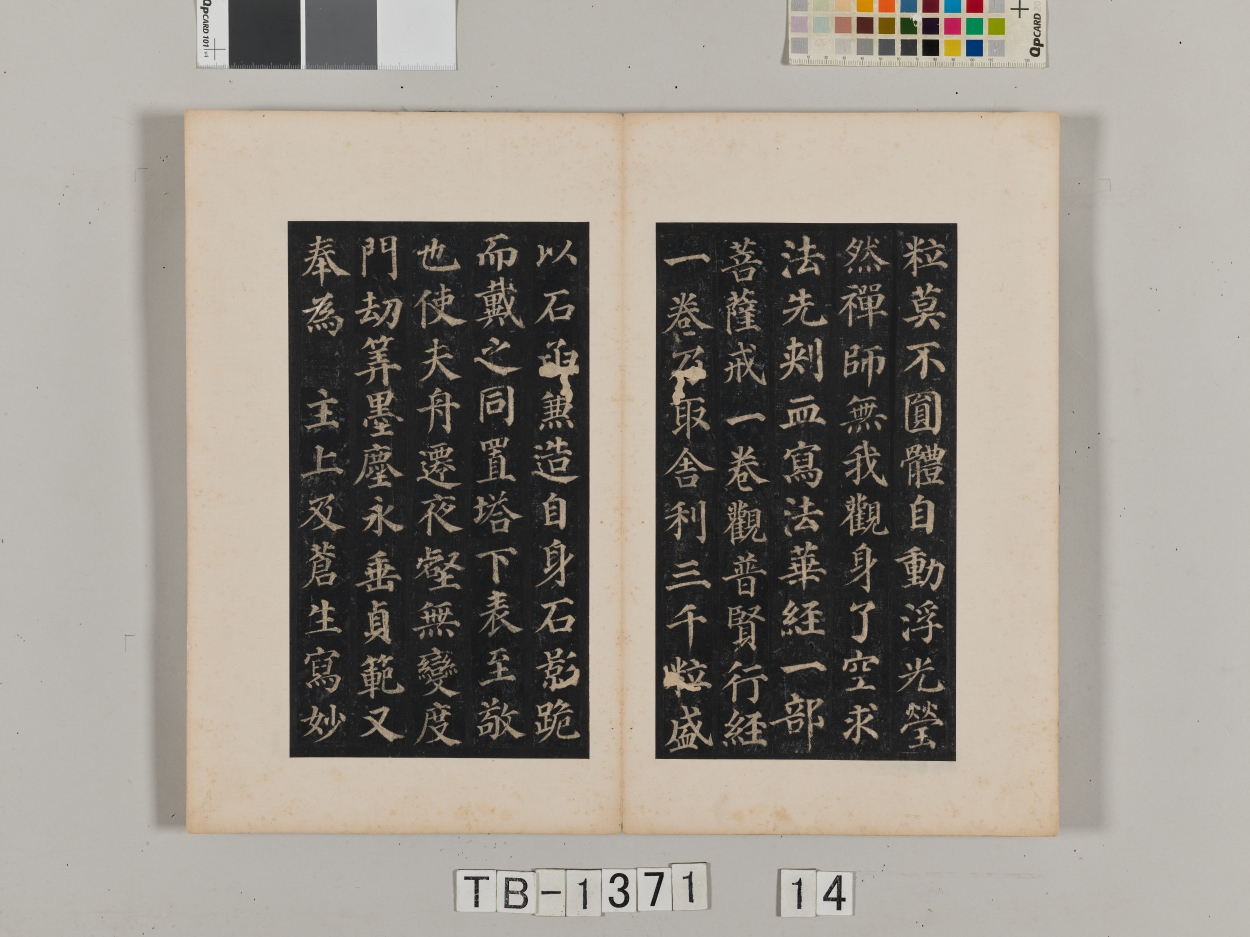 粒莫不圓體自動浮光瑩
然禪師無我觀身了空求
法先刺血寫法華経一部
菩薩戒一卷觀普賢行経
一卷乃取舎利三千粒盛
以石函兼造自身石影跪
而戴之同置塔下表至敬
也使夫舟遷夜壑無變度
門劫筭墨塵永垂貞範又
奉為 主上及蒼生寫妙
QPCARD 101
QPCARD
TB-1371 14